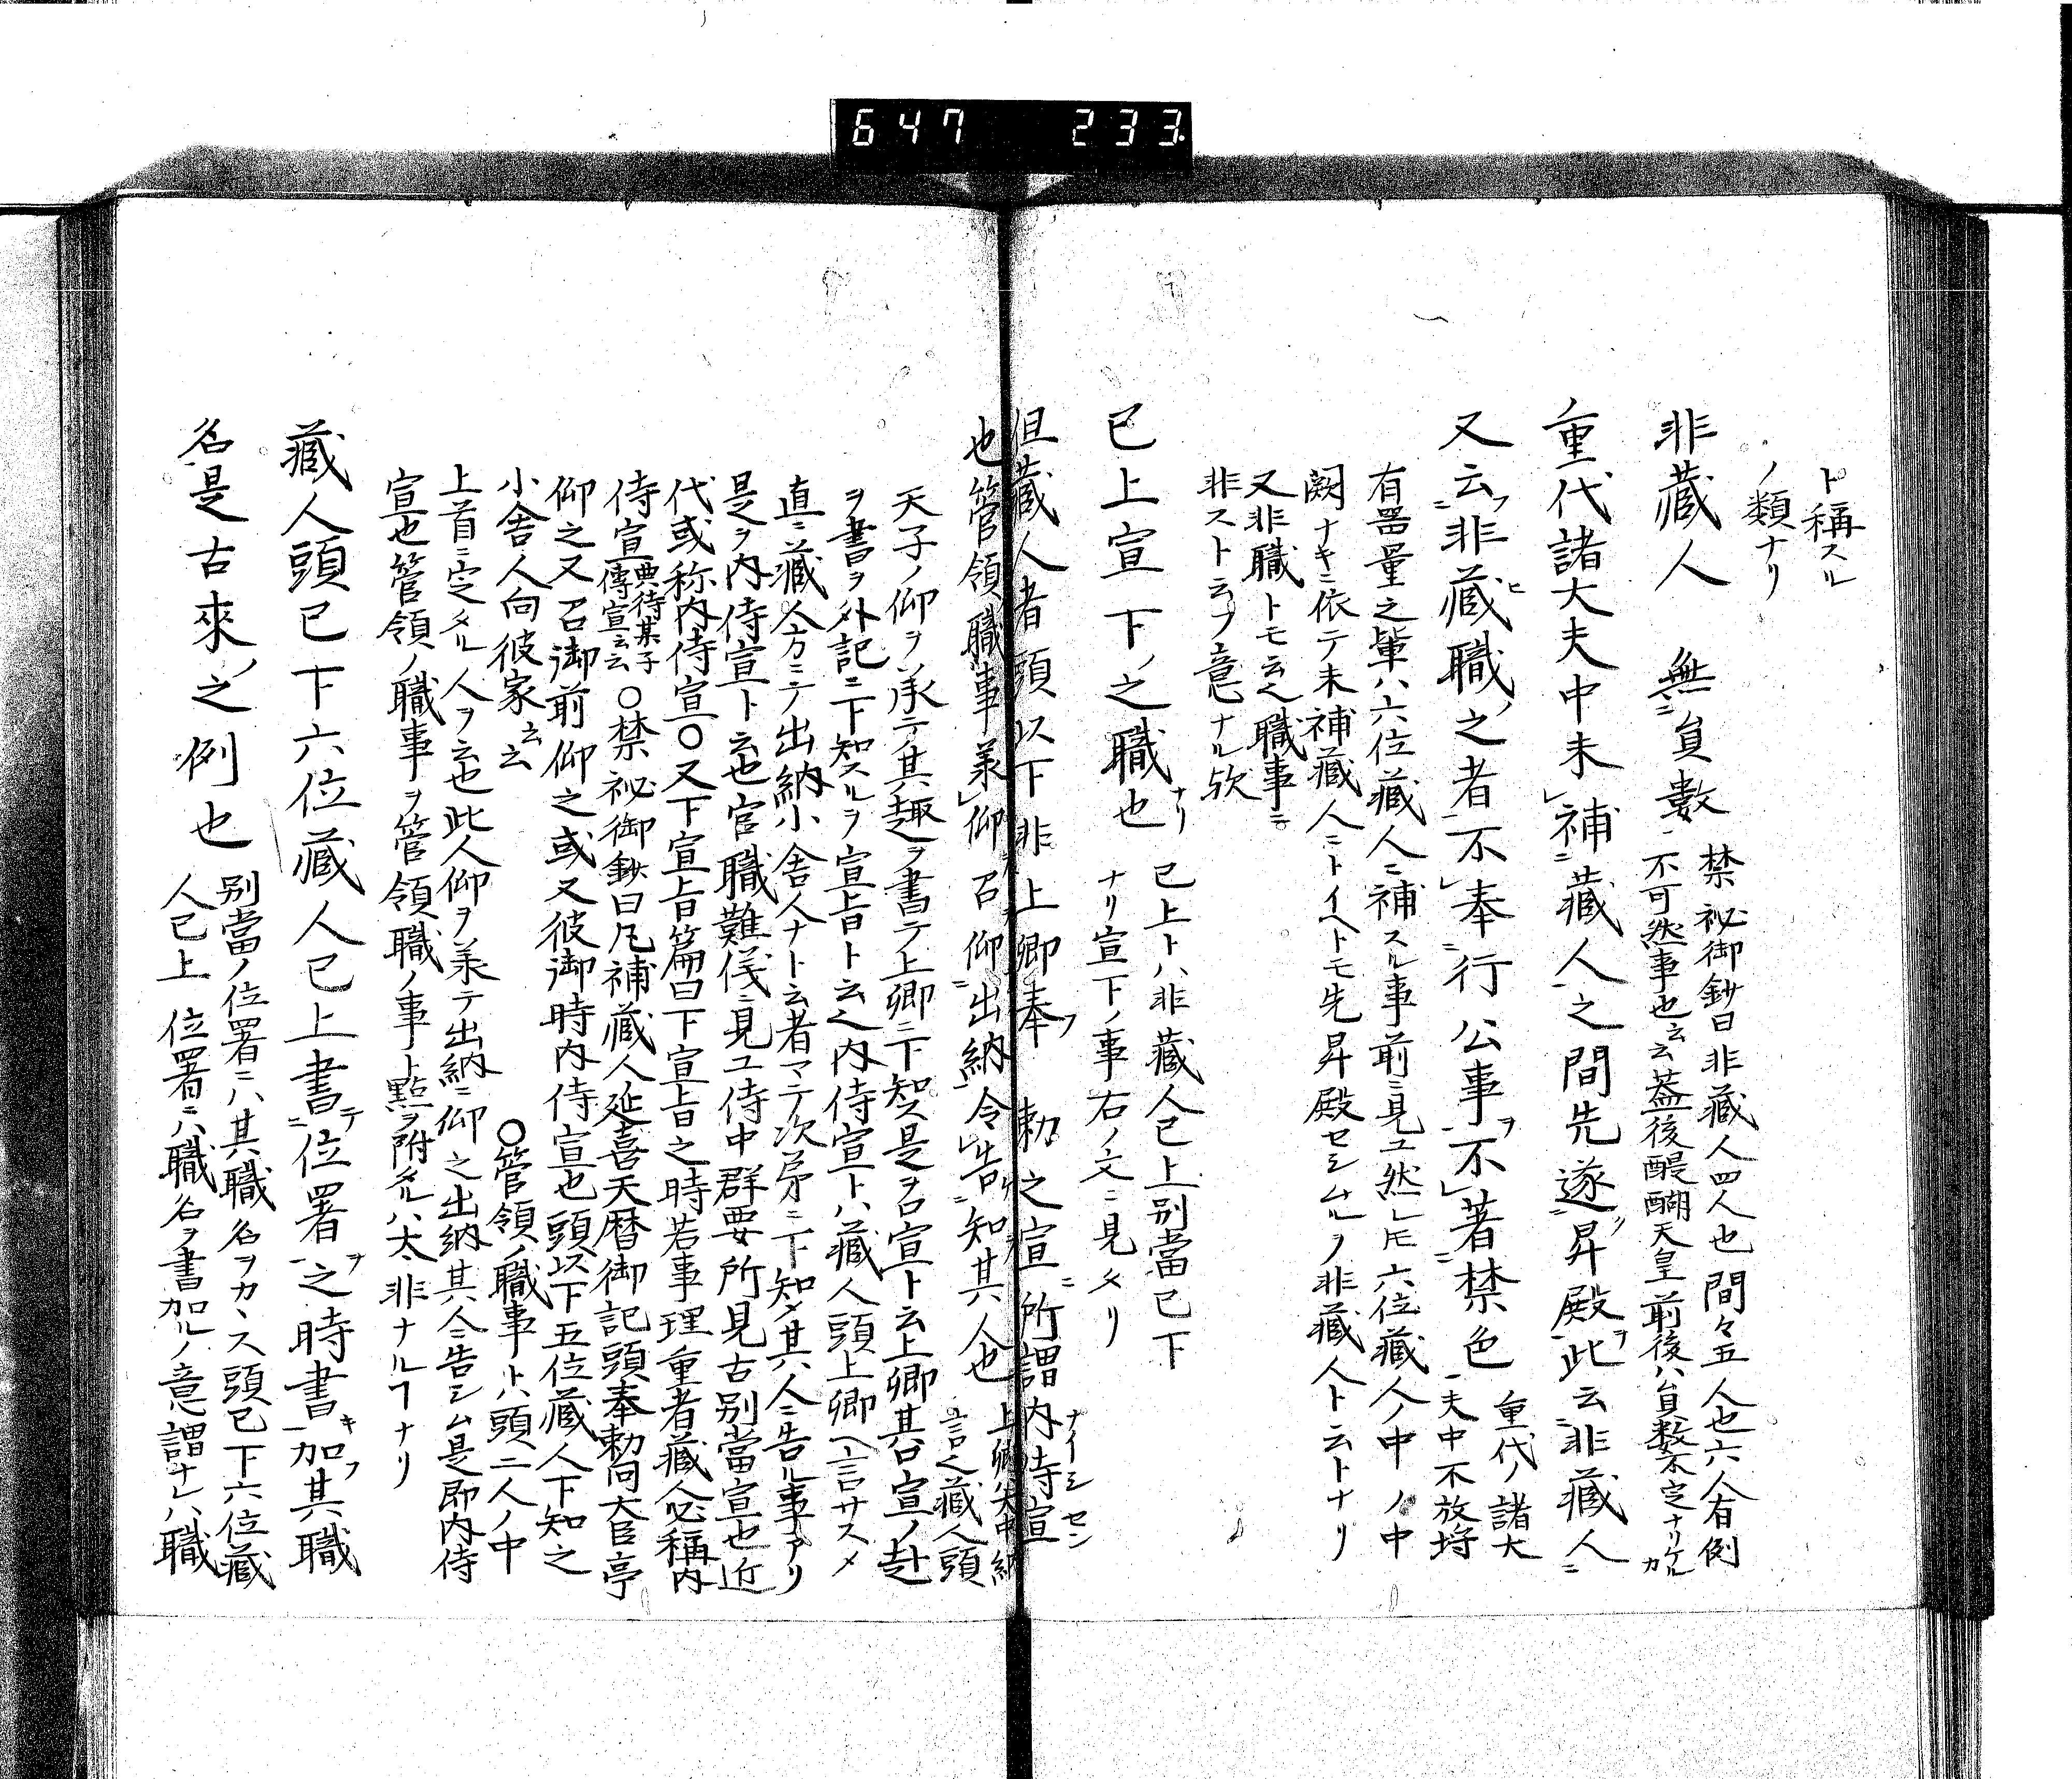 647 233
ト稱スル
ノ類ナリ
非藏人 無員數 禁祕御鈔曰非藏人四人也間々五人也六人有例
不可然事也云云蓋後醍醐天皇前後ハ員数不定ナリケルカ
重代諸大夫中未補藏人之間先遂昇殿ヲ此云非藏人ニ
又云フ非藏職ノ之者不奉行公事ヲ不著禁色 重代ノ諸大
夫中不放埒
有器量之輩ハ六位藏人ニ補スル事前ニ見ユ然レ𪜈六位藏人ノ中ノ中
闕ナキニ依テ未補藏人ニトイヘトモ先昇殿セシムルヲ非藏人ト云トナリ
又非職トモ云ヘ職事ニ
非ストト云フ意ナル欤
已上宣下ノ之職也ナリ 已上トハ非藏人已上別當已下
ナリ宣下ノ事右ノ文ニ見タリ
但藏人者頭以下非上卿奉フ勅之宣ニ所謂内侍宣ナイシセン
也管領職事兼仰召仰出納令告知其人也 上卿ハ大中納
言ヘ藏人頭
天子ノ仰ヲ承テ其趣ヲ書テ上卿ニ下知ス是ヲ口宣ト云上卿其口宣ノ赴
ヲ書ヲ外記ニ下知スルヲ宣旨ト云ヘ内侍宣トハ藏人頭上卿ヘ言サスメ
直ニ藏人方ニテ出納小舎人ナト云者マテ次第ニ下知メ其人ニ告ル事アリ
是ヲ内侍宣ト云也官職難儀ニ見ユ侍中群要所見古別當宣也近
代或称内侍宣〇又下宣旨篇曰下宣旨之時若事理重者藏人必稱内
侍宣典侍某子傳宣云云 〇禁祕御鈔曰凡補藏人延喜天暦御記頭奉勅向大臣亭
仰之又召御前仰之或又彼御時内侍宣也頭以下五位藏人下知之
小舎人向彼家云云 〇管領ノ職事トハ頭二人ノ中
上首ニ定メタル人ヲ云也此人仰ヲ兼テ出納ニ仰之出納其人ニ告シム是即内侍
宣也管領ノ職事ヲ管領職ノ事ト點ヲ附タルハ太非ナルヿナリ
藏人頭已下六位藏人已上書テ位署ヲ之時書キ加フ其職
名是古來ノ之例也 別當ノ位署ニハ其職名ヲカヽス頭已下六位藏
人已上位署ニハ職名ヲ書加ルノ意謂ナレハ職